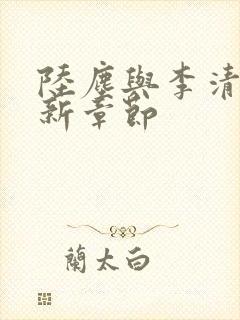 陸塵與李清
新章節
蘭太白